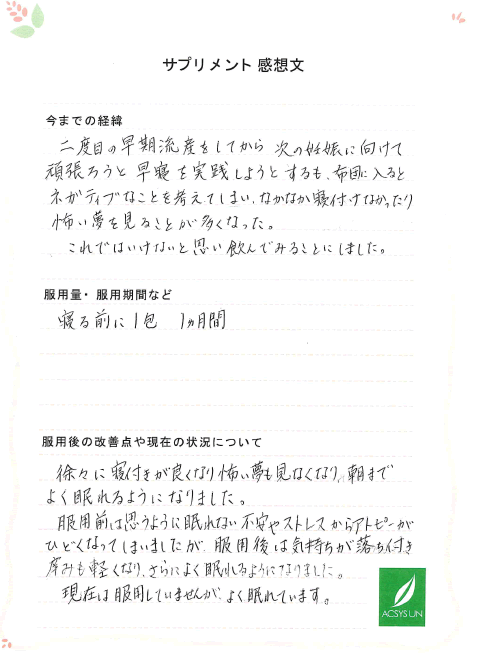 サプリメント 感想文
今までの経緯
二度目の早期流産をしてから 次の妊娠に向けて
頑張ろうと 早寝を実践しようとするも、布団に入ると
ネガティブなことを考えてしまい、なかなか寝付けなかったり
怖い夢を見ることが多くなった。
これではいけないと思い飲んでみることにしました。
服用量・服用期間など
寝る前に1包 1ヵ月間
服用後の改善点や現在の状況について
徐々に寝付きが良くなり怖い夢も見なくなり、朝まで
よく眠れるようになりました。
服用前は思うように眠れない不安やストレスからアトピーが
ひどくなってしまいましたが、服用後は気持ちが落ち付き
痒みも軽くなり、さらによく眠れるようになりました。
現在は服用していませんが、よく眠れています。
ACSYS UN